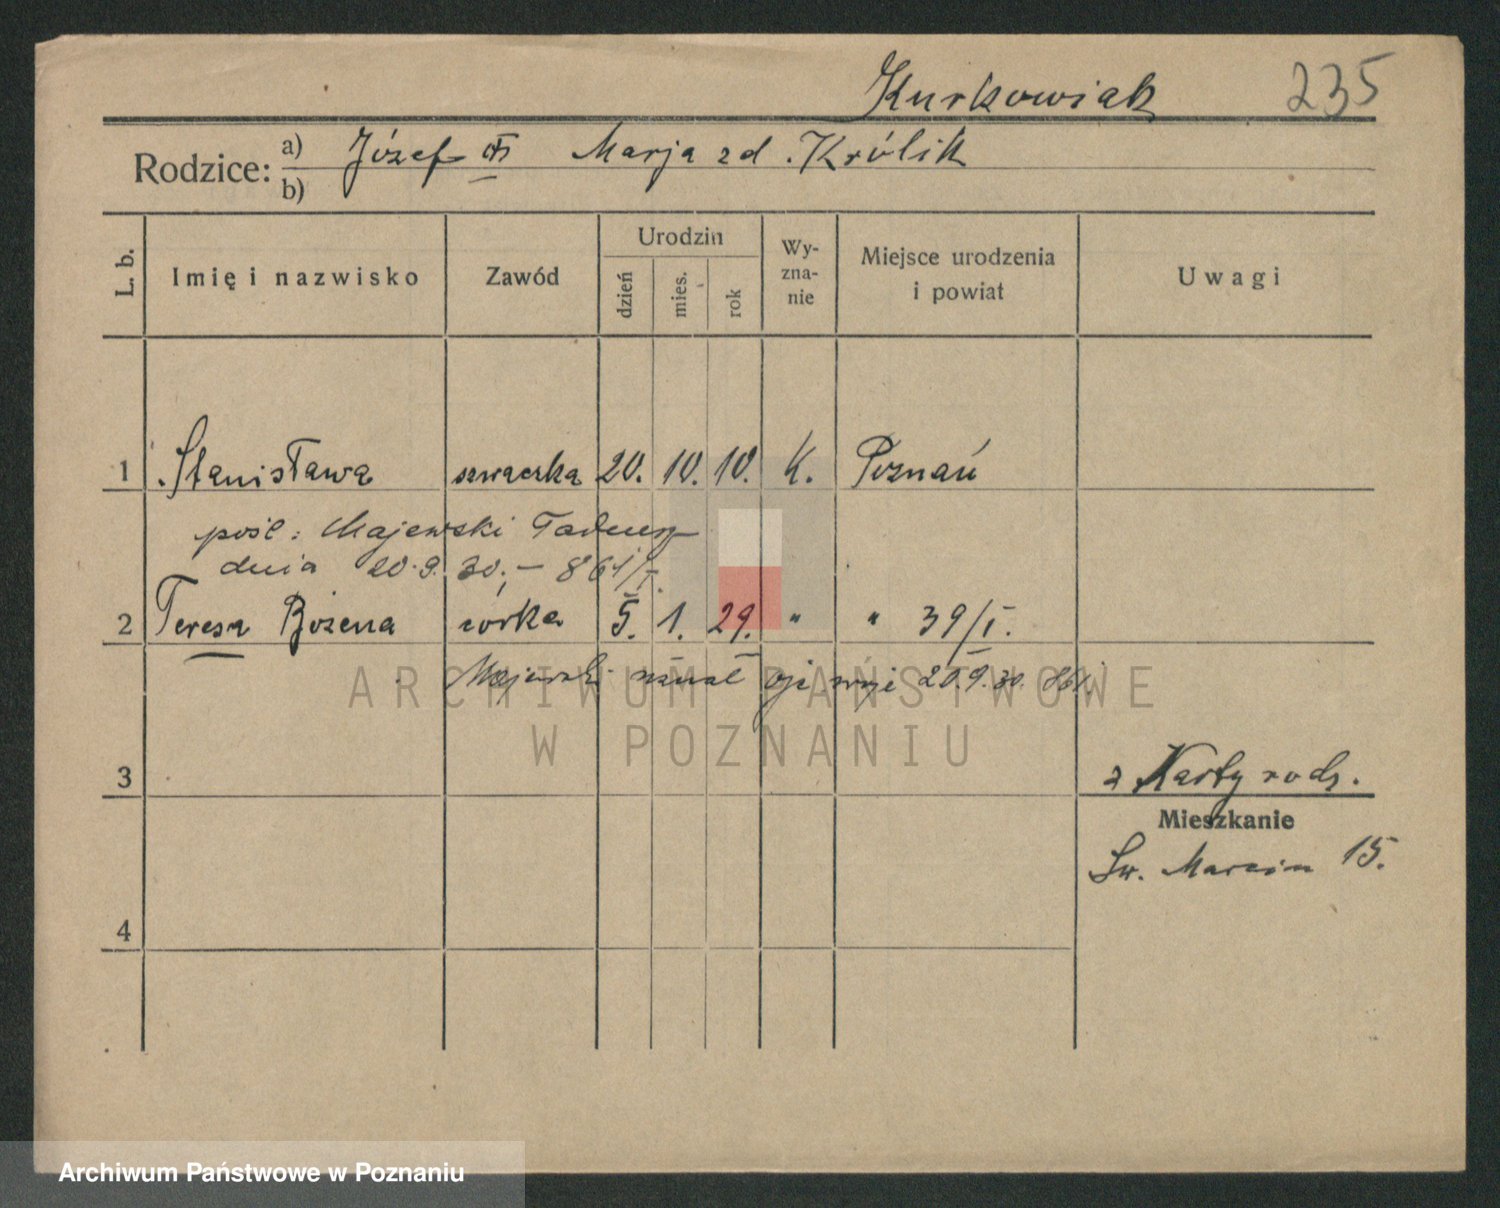 Kurkowiak 235
Rodzice: a) Józef Marja zd. Królik
b)
L. b. Imię i nazwisko Zawód Urodzin dzień mies. rok Wy-zna-nie Miejsce urodzenia i powiat Uwagi
1 Stanisława szwaczka 20. 10. 10. K. Poznań
pośl: Majewski Tadeusz
dnia 20.9.30.– 861/I.
2 Teresa Bożena córka 5. 1. 29. " " 39/I.
Majewski uznał 20.9.30. 861.
ARCHIWUM PAŃSTWOWE
W POZNANIU
3 z Karty rodz.
Mieszkanie
Św. Marcin 15.
4
Archiwum Państwowe w Poznaniu